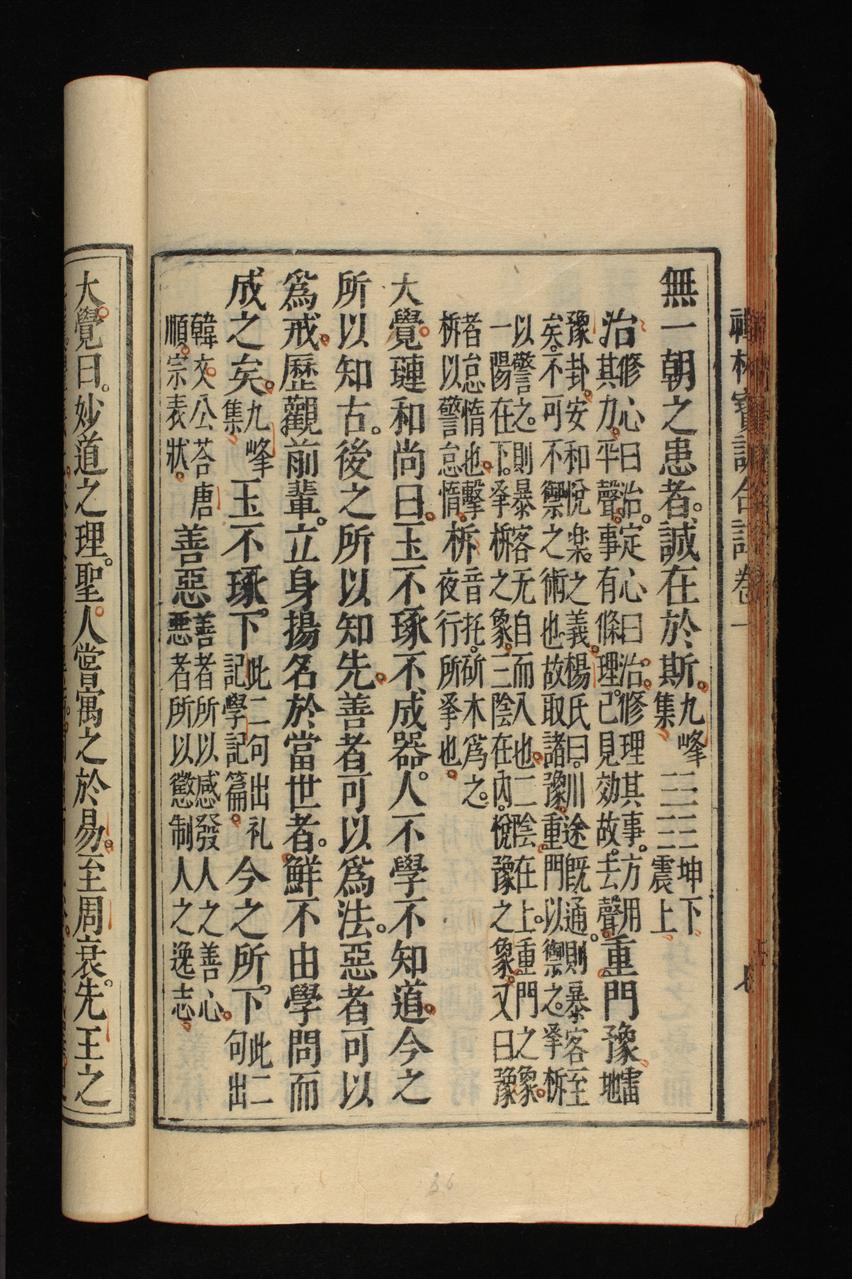 禪林寶訓合註卷一
無一朝之患者。誠在於斯。九峰集 三三 坤下震上
治 修心曰治。定心曰治。修理其事。方用
其力。平聲。事有條理。已見効故。去聲。重門豫 雷地
豫卦。安和悅樂之義。楊氏曰。川途旣通。則暴客至
矣。不可不禦之術也。故取諸豫。重門以禦之。擊柝
以警之。則暴客无自而入也。二陰在上。重門之象。
一陽在下。擊柝之象。三陰在內。悅豫之象。又曰豫
者怠惰也。擊
柝以警怠惰。柝 音托。斫木爲之。
夜行所擊也。
大覺璉和尚曰。玉不琢不成器。人不學不知道。今之
所以知古。後之所以知先。善者可以爲法。惡者可以
爲戒。歷觀前輩。立身揚名於當世者。鮮不由學問而
成之矣。九峰集 玉不琢。下 此二句出礼
記學記篇。 今之所。下 此二
句出
韓文公荅唐
順宗表狀。 善惡 善者所以感發人之善心。
惡者所以懲制人之逸志。
大覺曰。妙道之理。聖人嘗寓之於易。至周衰。先王之